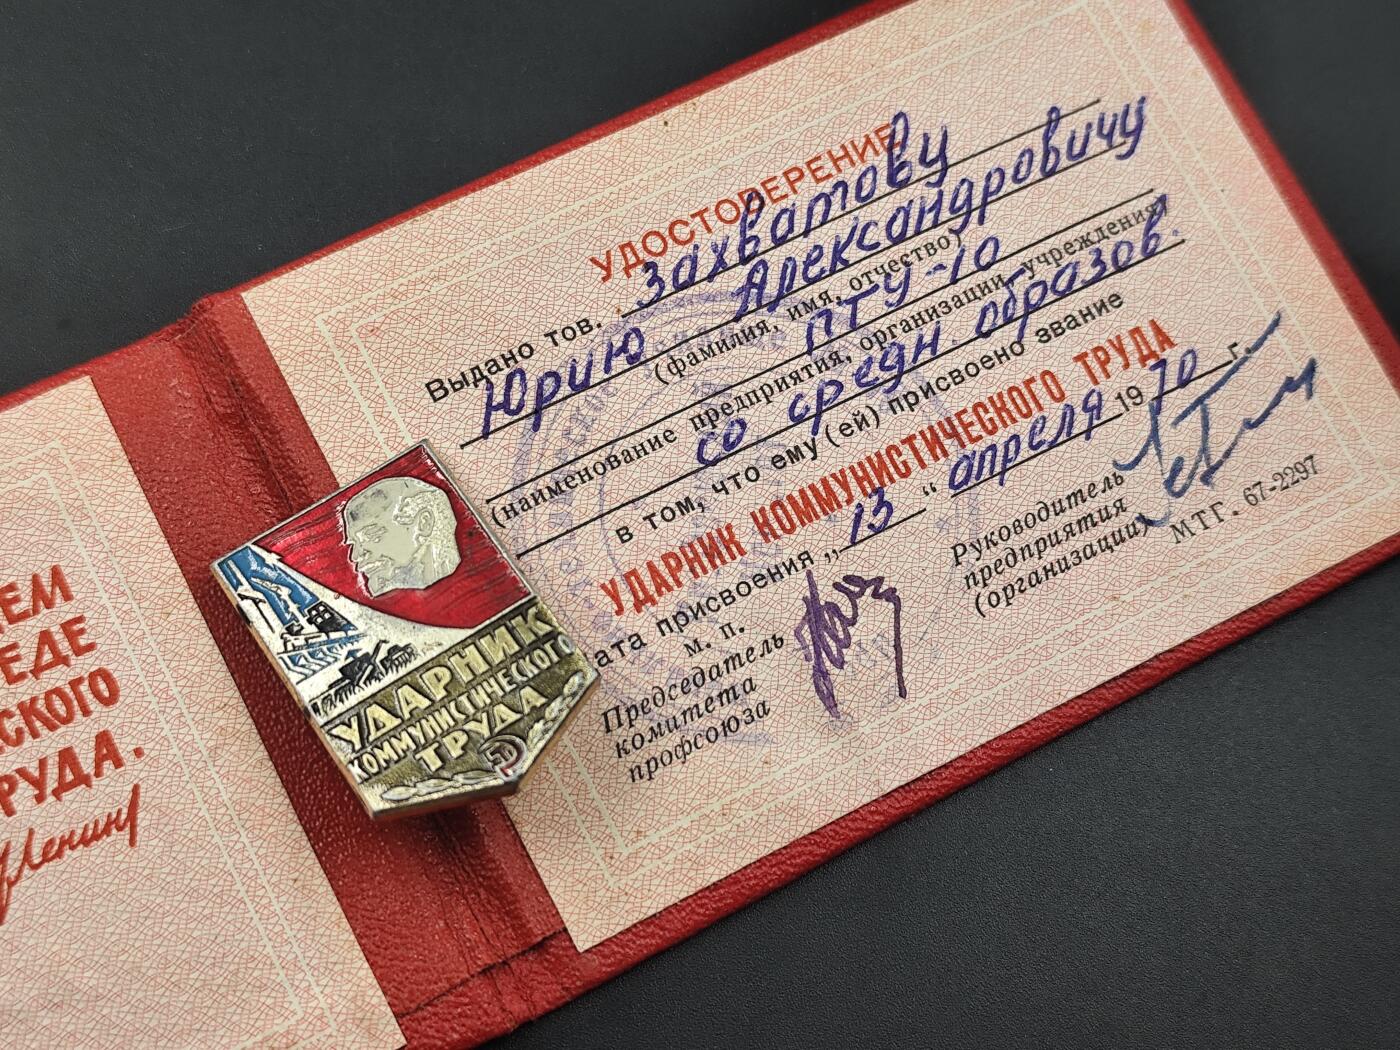 ЕДЕ
СКОГО
РУДА.
Ленин
УДОСТОВЕРЕНИЕ
Выдано тов. Захватову
Юрию Александровичу
(фамилия, имя, отчество)
ПТУ-10
(наименование предприятия, организации, учреждения)
со средн. образов.
в том, что ему (ей) присвоено звание
УДАРНИК КОММУНИСТИЧЕСКОГО ТРУДА
ата присвоения „13“ апреля 1970 г.
м. п.
Председатель
комитета
профсоюза
Руководитель
предприятия
(организации)
МТГ. 67-2297
УДАРНИК
КОММУНИСТИЧЕСКОГО
ТРУДА